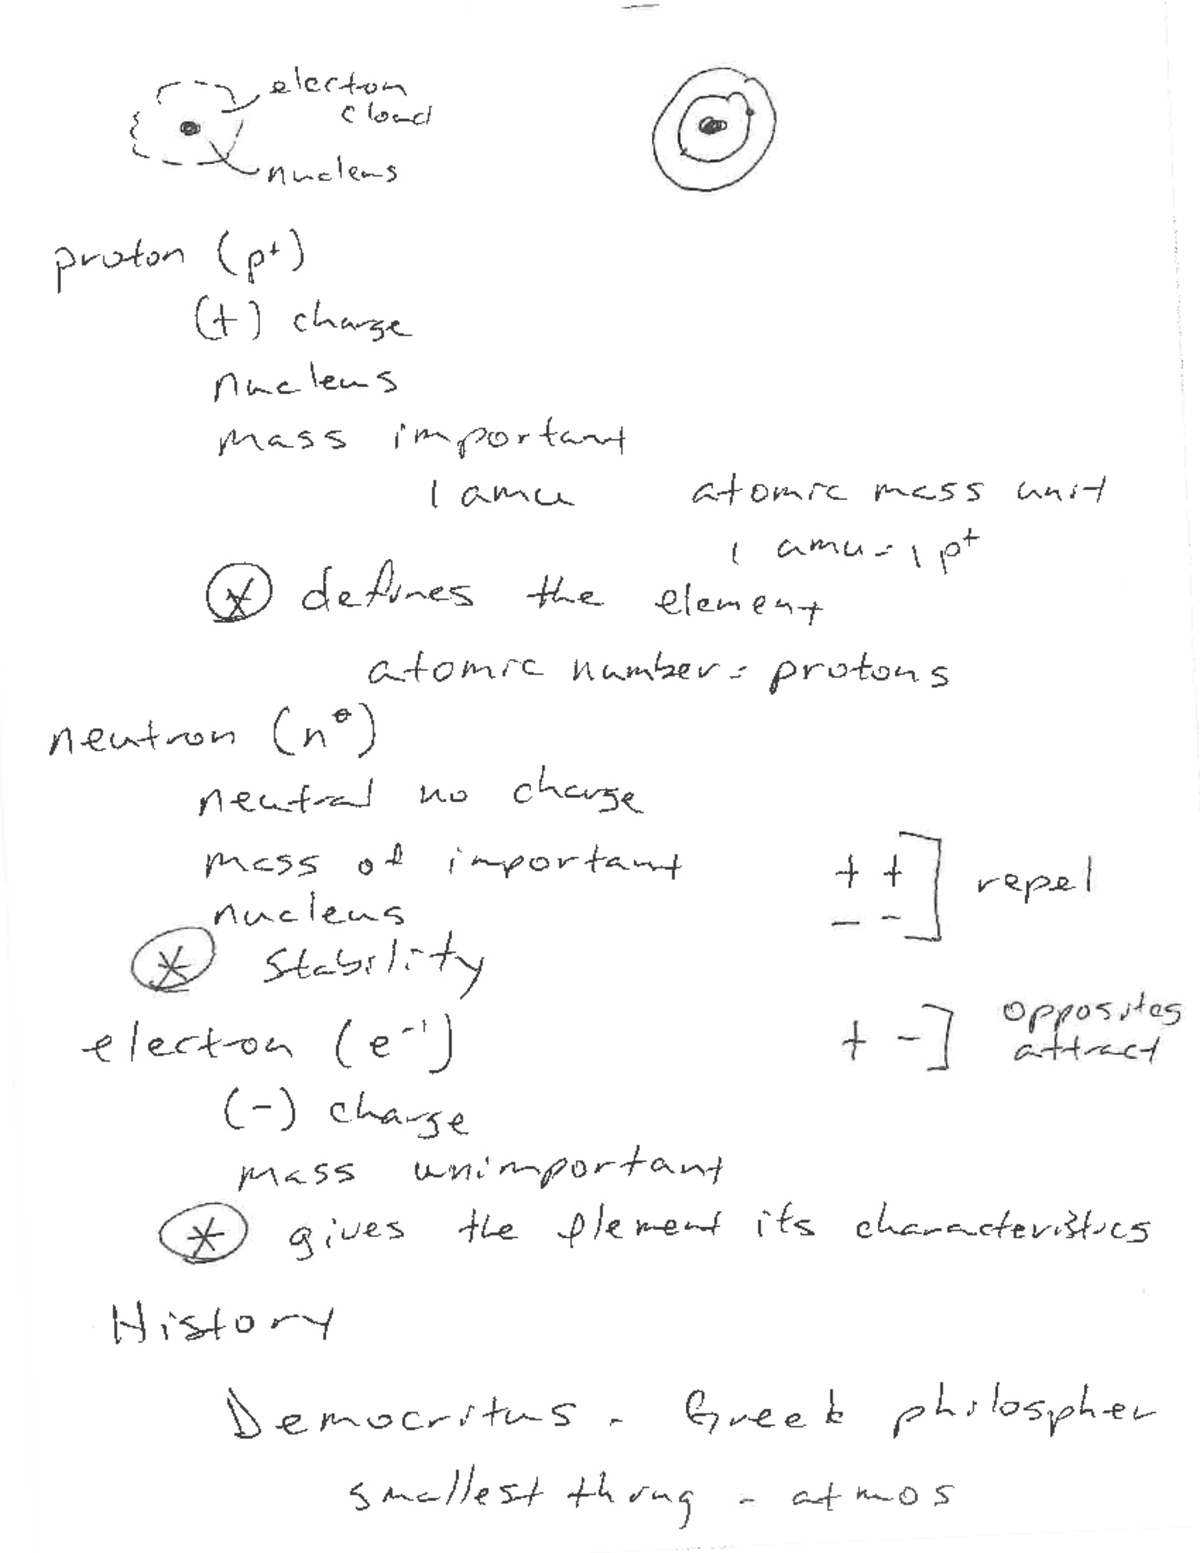 electron
cloud
nucleus
proton (p⁺)
(+) charge
nucleus
mass important
1 amu atomic mass unit
1 amu = 1 p⁺
* defines the element
atomic number = protons
neutron (n⁰)
neutral no charge
mass of important
nucleus
* Stability
+ + ] repel
- -
electron (e⁻¹)
+ - ] opposites
attract
(-) charge
mass unimportant
* gives the element its characteristics
History
Democritus - Greek philospher
smallest thing - atmos